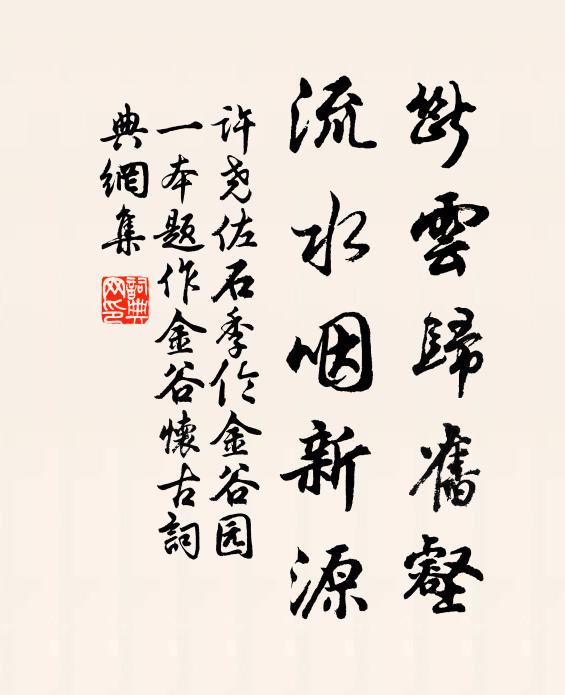 斷雲歸舊壑
流水咽新源
许堯佐石季伦金谷园
一本题作金谷懷古詞
典網集
詞典
网印